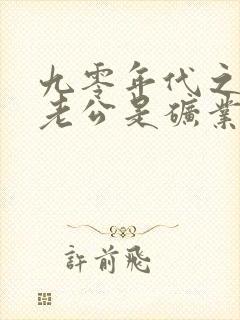 九零年代之
老公是礦業
許前飛